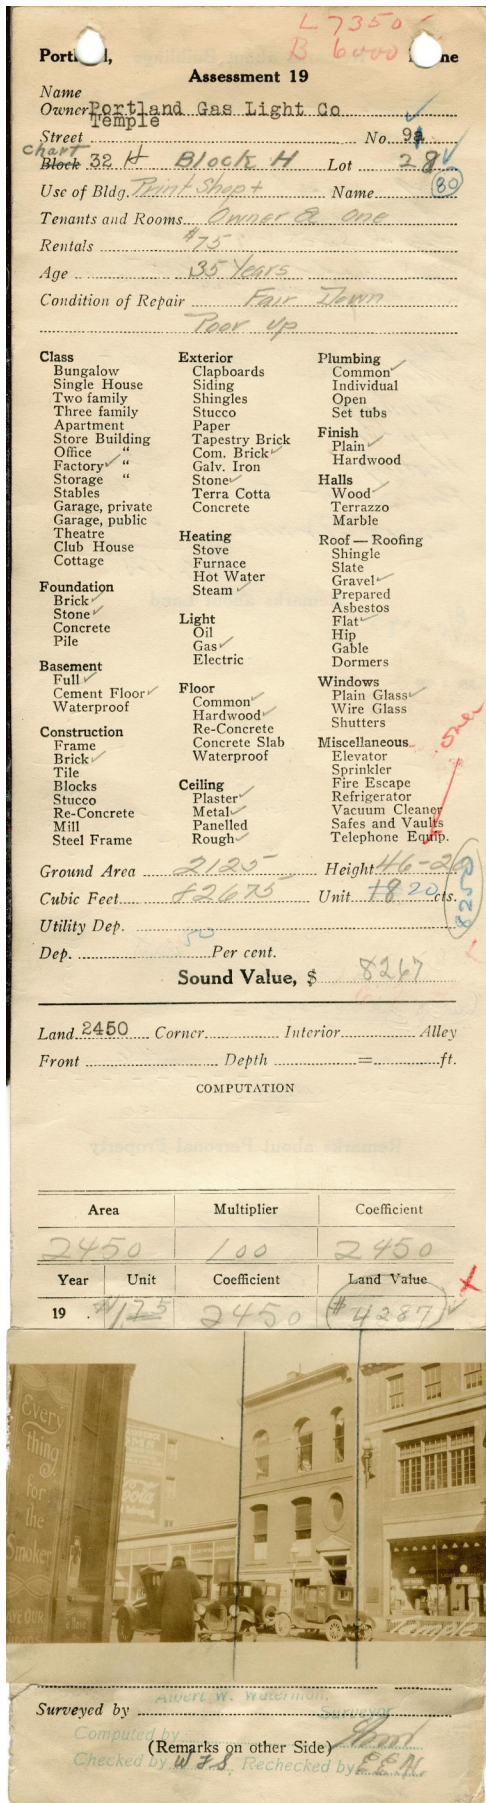 L 7350
B 6000
Portl d, ne
Assessment 19
Name
Owner Portland Gas Light Co
Temple
Street No. 9
chart
Block 32 H Block H Lot 28
Use of Bldg. Print Shop + Name 80
Tenants and Rooms Owner & one
Rentals $75
Age 35 Years
Condition of Repair Fair Down
Poor up
Class
Bungalow
Single House
Two family
Three family
Apartment
Store Building
Office "
Factory ✓ "
Storage "
Stables
Garage, private
Garage, public
Theatre
Club House
Cottage
Foundation
Brick ✓
Stone ✓
Concrete
Pile
Basement
Full ✓
Cement Floor ✓
Waterproof
Construction
Frame
Brick ✓
Tile
Blocks
Stucco
Re-Concrete
Mill
Steel Frame
Exterior
Clapboards
Siding
Shingles
Stucco
Paper
Tapestry Brick
Com. Brick ✓
Galv. Iron
Stone ✓
Terra Cotta
Concrete
Heating
Stove
Furnace
Hot Water
Steam ✓
Light
Oil
Gas ✓
Electric
Floor
Common ✓
Hardwood ✓
Re-Concrete
Concrete Slab
Waterproof
Ceiling
Plaster ✓
Metal ✓
Panelled
Rough ✓
Plumbing
Common ✓
Individual
Open
Set tubs
Finish
Plain ✓
Hardwood
Halls
Wood ✓
Terrazzo
Marble
Roof — Roofing
Shingle
Slate
Gravel ✓
Prepared
Asbestos
Flat ✓
Hip
Gable
Dormers
Windows
Plain Glass ✓
Wire Glass
Shutters
Miscellaneous
Elevator
Sprinkler
Fire Escape
Refrigerator
Vacuum Cleaner
Safes and Vaults
Telephone Equip.
over
Ground Area 2125 Height 46-2
Cubic Feet 82675 Unit 18 20 cts.
8250
Utility Dep.
Dep. 50 Per cent.
Sound Value, $ 8267
Land 2450 Corner Interior Alley
Front Depth = ft.
COMPUTATION
Area Multiplier Coefficient
2450 100 2450
Year Unit Coefficient Land Value
19 $1.75 2450 $4287
Every
thing
for
the
Smoker
Temple
Albert W. Waterman.
Surveyed by Surveyor
Computed by
(Remarks on other Side)
Checked by W F S. Rechecked by E E N